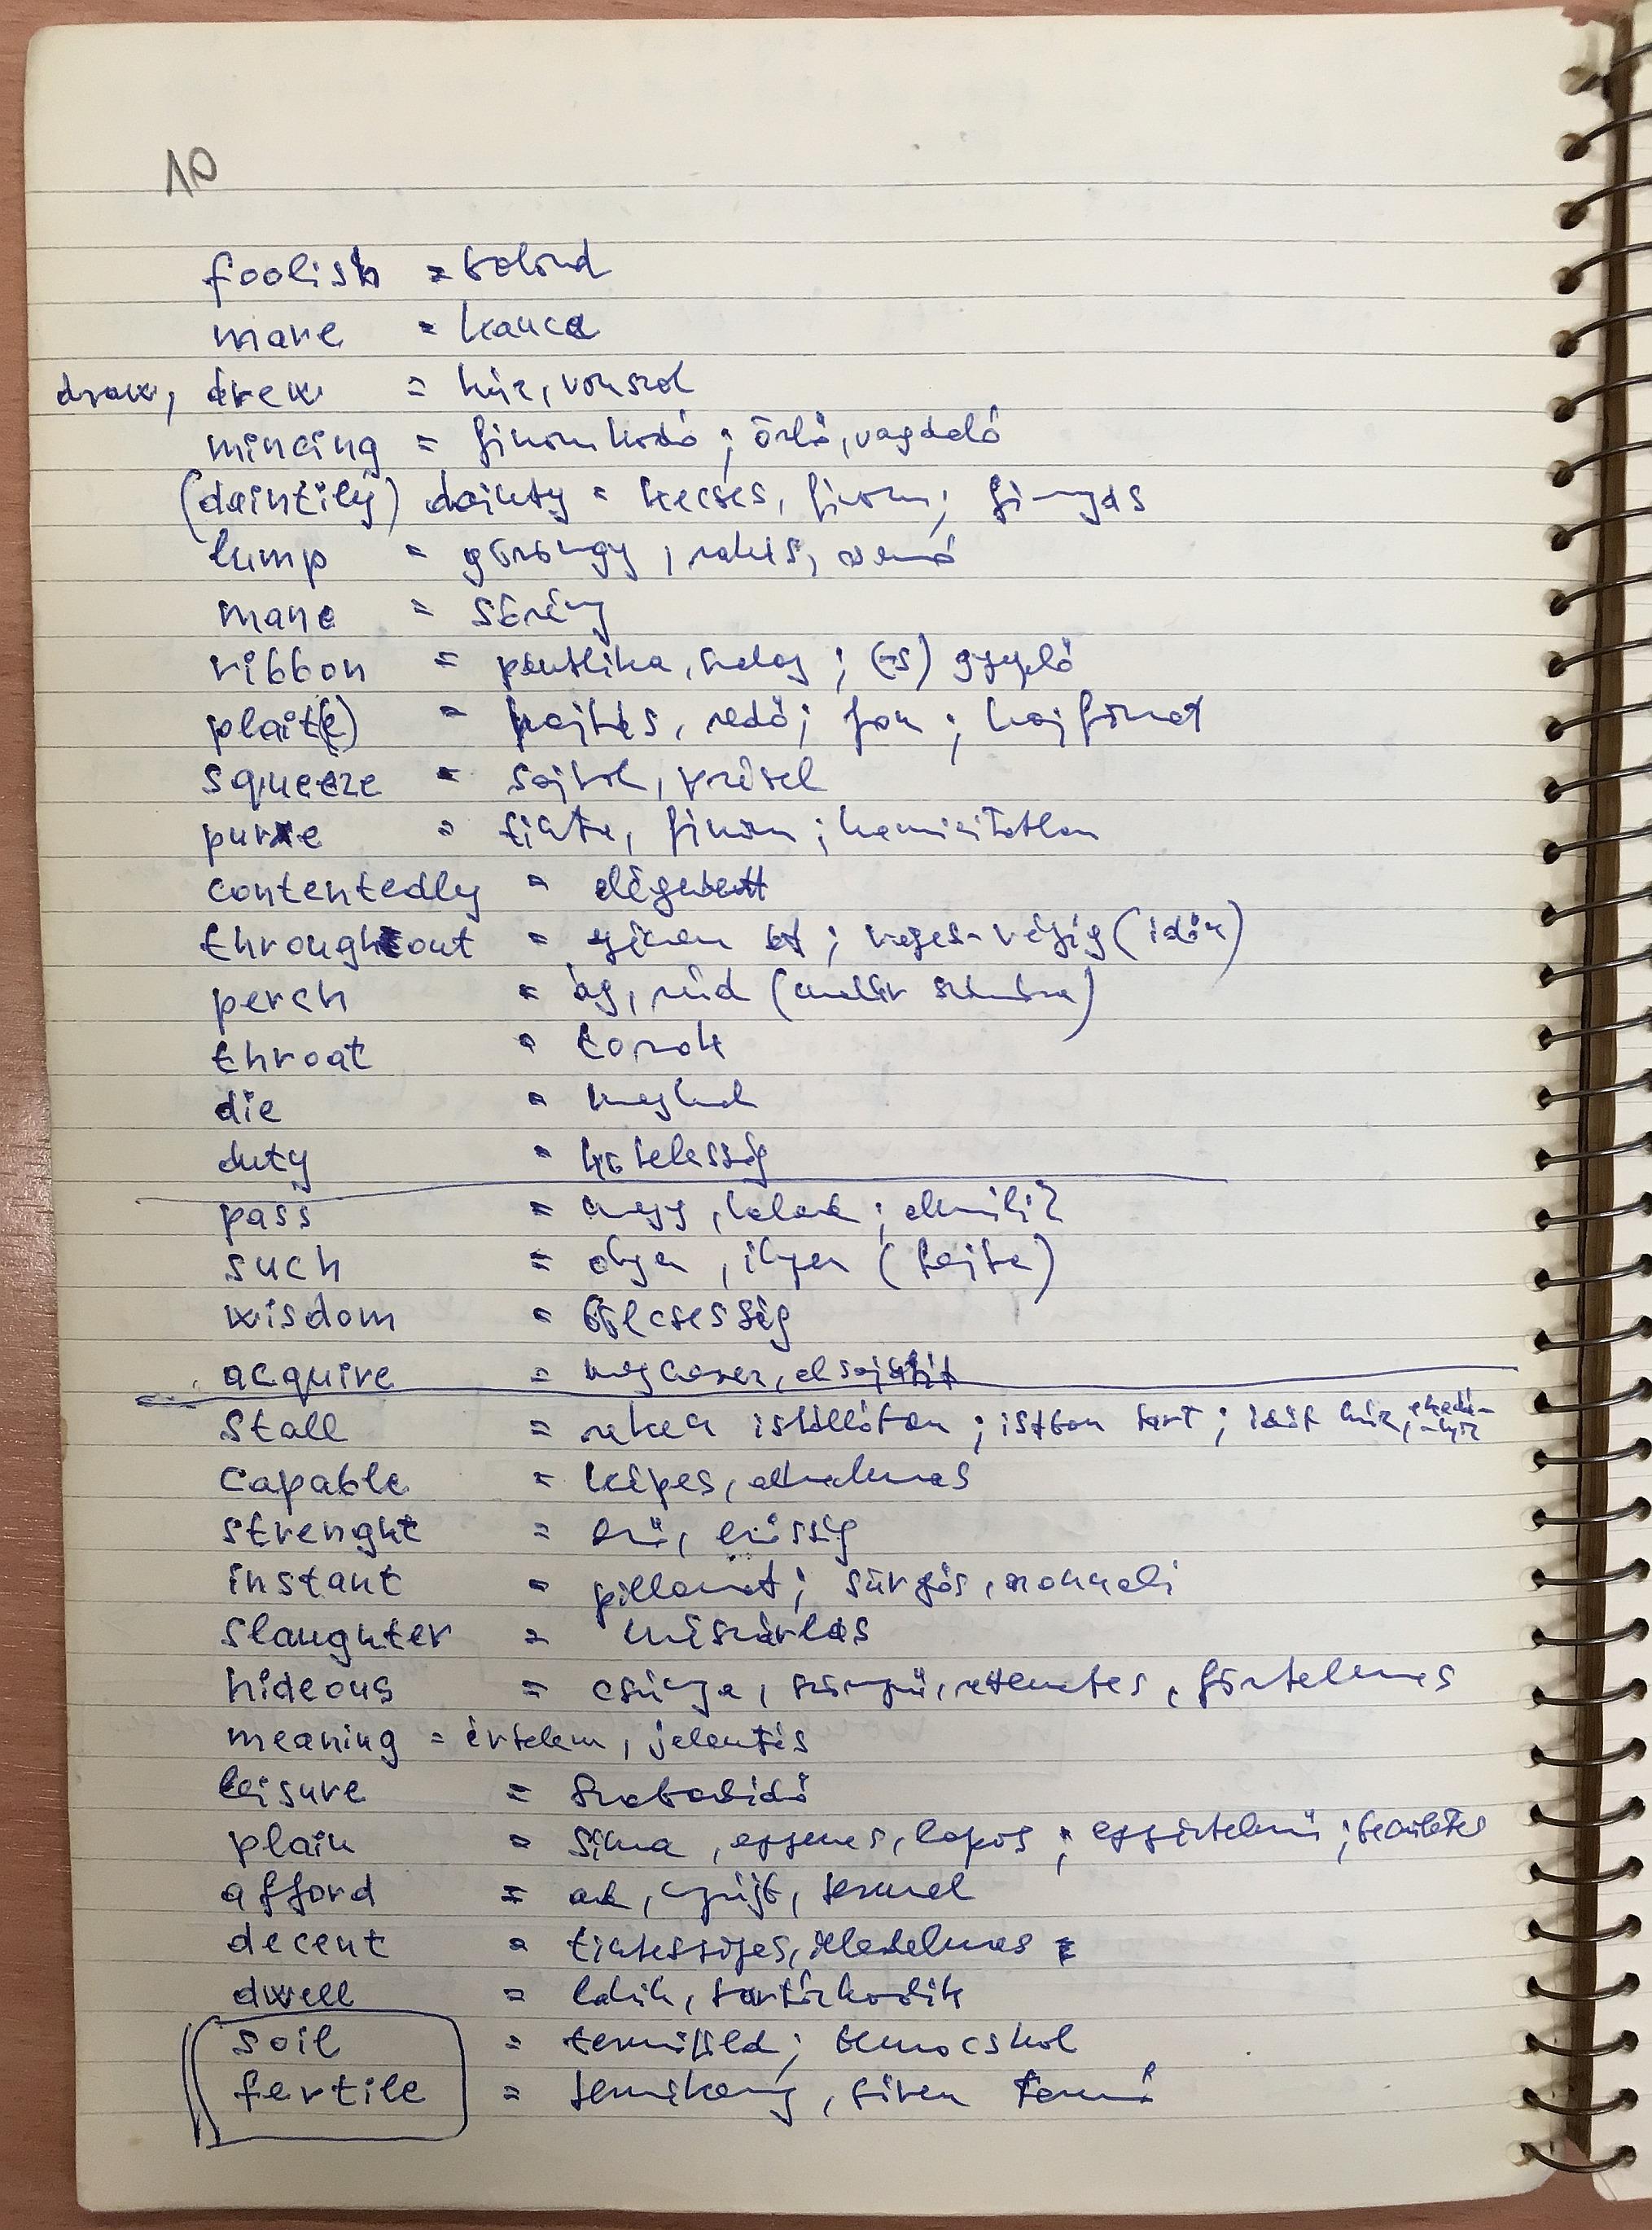 10
foolish = bolond
mare = kanca
draw, drew = húz, vonszol
mincing = finomkodó; őrlő, vagdaló
(daintily) dainty = kecses, finom; finnyás
lump = göröngy, rakás,
mane = sörény
ribbon = pántlika, szalag; (-s) gyeplő
plait(e) = hajtás, redő; fon; hajfonat
squeeze = sajtol, présel
pure = tiszta, finom; hamisítatlan
contentedly = elégedett
throughout = át; véges-végig (időn)
perch = ág, rúd (madár számára)
throat = torok
die = meghal
duty = kötelesség
pass = megy, halad; elmúlik
such = olyan, ilyen (fajta)
wisdom = bölcsesség
acquire = megszerez, elsajátít
stall = rekesz istállóban; istállóban tart; időt húz,
capable = képes, alkalmas
strenght = erő, erősség
instant = pillanat; sürgős, azonnali
slaughter = mészárlás
hideous = csúnya, szörnyű, rettenetes, förtelmes
meaning = értelem, jelentés
leisure = szabadidő
plain = sima, egyenes, lapos; egyértelmű;
afford = ad, nyújt, terem
decent = tisztességes, illedelmes
dwell = lakik, tartózkodik
soil = termőföld; bemocskol
fertile = termékeny, bőven termő